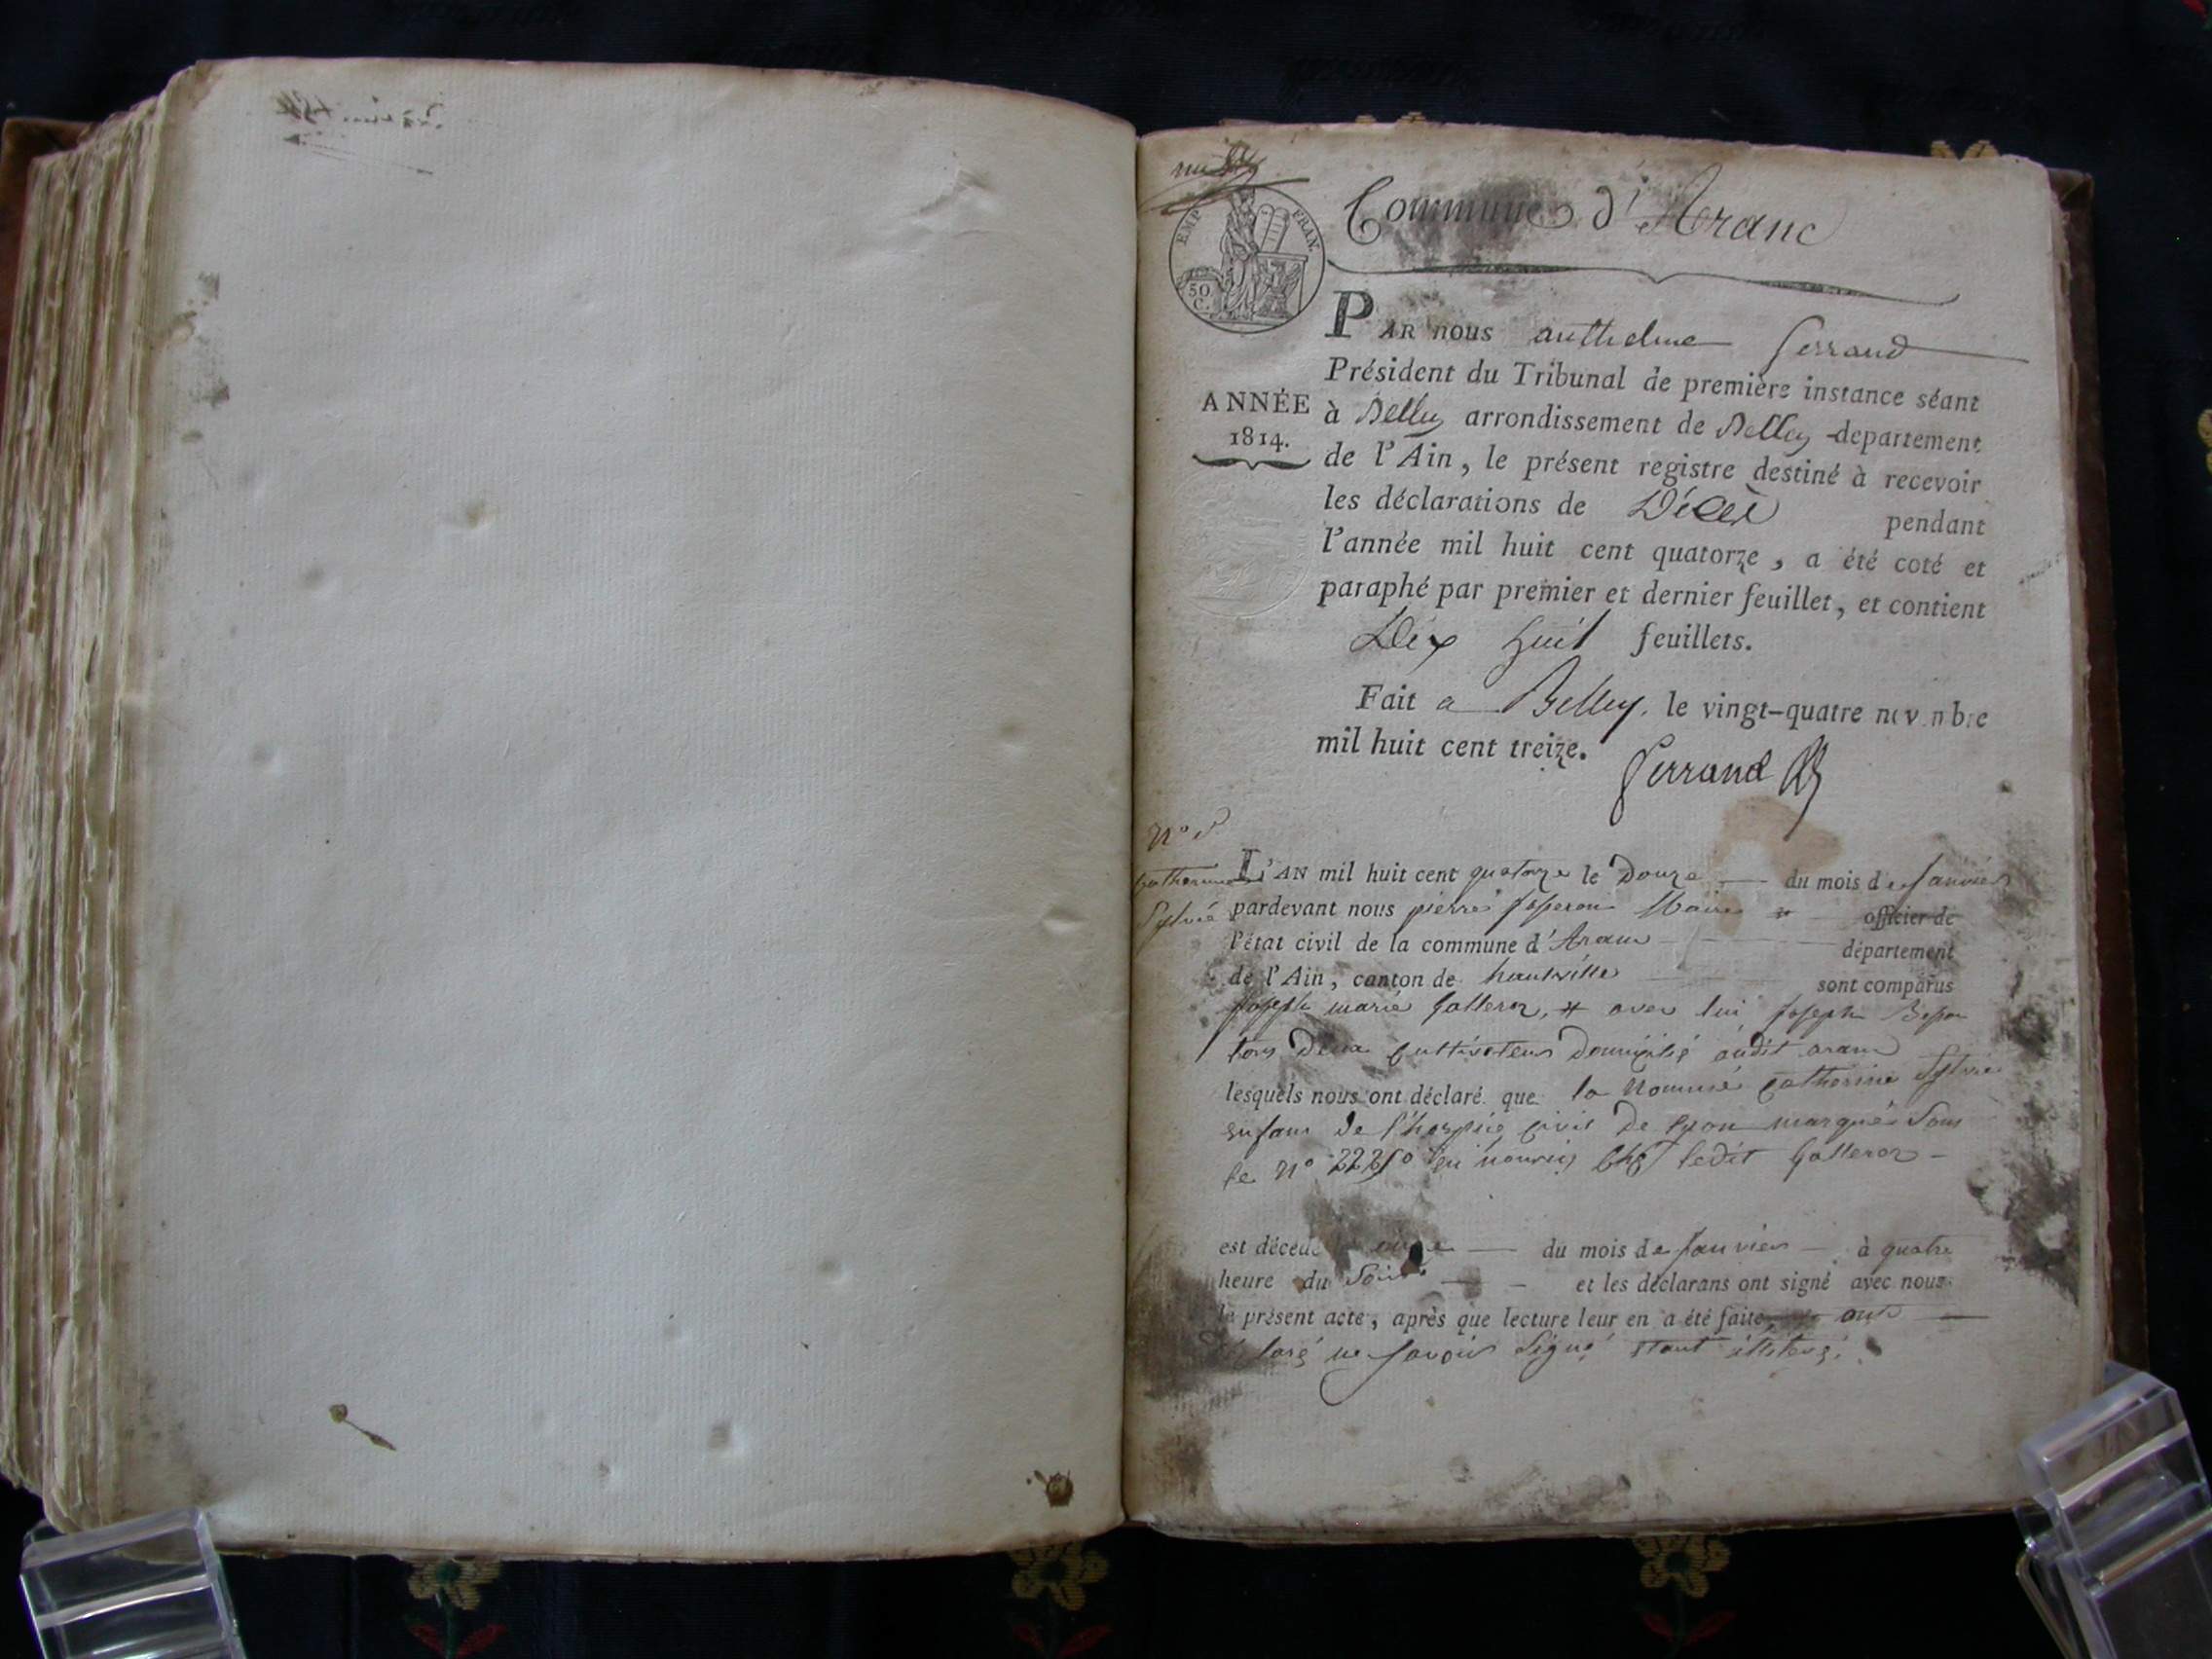 Commune d'Aranc
EMP FRAN.
50 C.
PAR nous anthelme Ferrand
Président du Tribunal de première instance séant
ANNÉE
1814.
à Belley arrondissement de Belley departement
de l'Ain, le présent registre destiné à recevoir
les déclarations de Décès pendant
l'année mil huit cent quatorze, a été coté et
paraphé par premier et dernier feuillet, et contient
Dix huit feuillets.
Fait a Belley, le vingt-quatre novembre
mil huit cent treize.
Ferrand
N°
Catherine
Sylvie
L'AN mil huit cent quatorze le Douze du mois de Janvier
pardevant nous pierre Maire officier de
l'état civil de la commune d'Aranc département
de l'Ain, canton de hauteville sont comparus
Joseph marie Galleron, avec lui Joseph
tous deux Cultivateurs Domicilié audit aranc
lesquels nous ont déclaré que la Nommé Catherine Sylvie
enfant de l'hospice civil de Lyon marqué Sous
le N° en nourrice chez ledit Galleron
est décédé le du mois de Janvier à quatre
heure du Soir et les déclarans ont signé avec nous
le présent acte, après que lecture leur en a été faite, ont
déclaré ne savoir Signé étant illiteré.